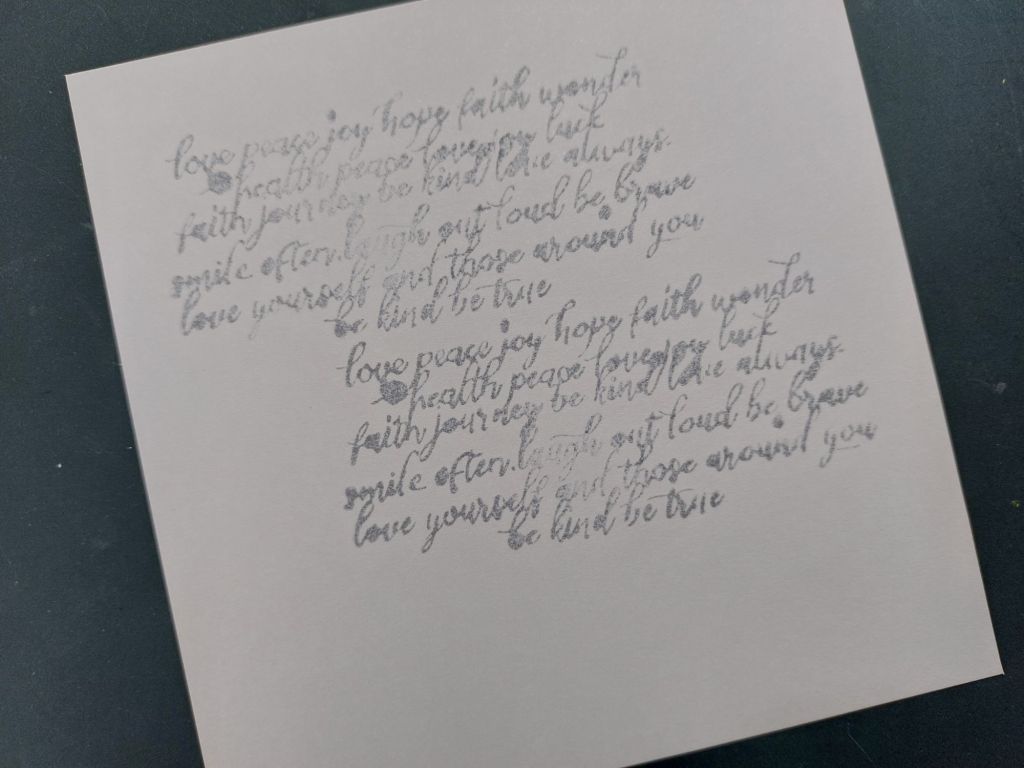 love peace joy hope faith wonder
health peace love joy luck
faith journey be kind love always.
smile often. laugh out loud be brave
love yourself and those around you
be kind be true
love peace joy hope faith wonder
health peace love joy luck
faith journey be kind love always.
smile often. laugh out loud be brave
love yourself and those around you
be kind be true